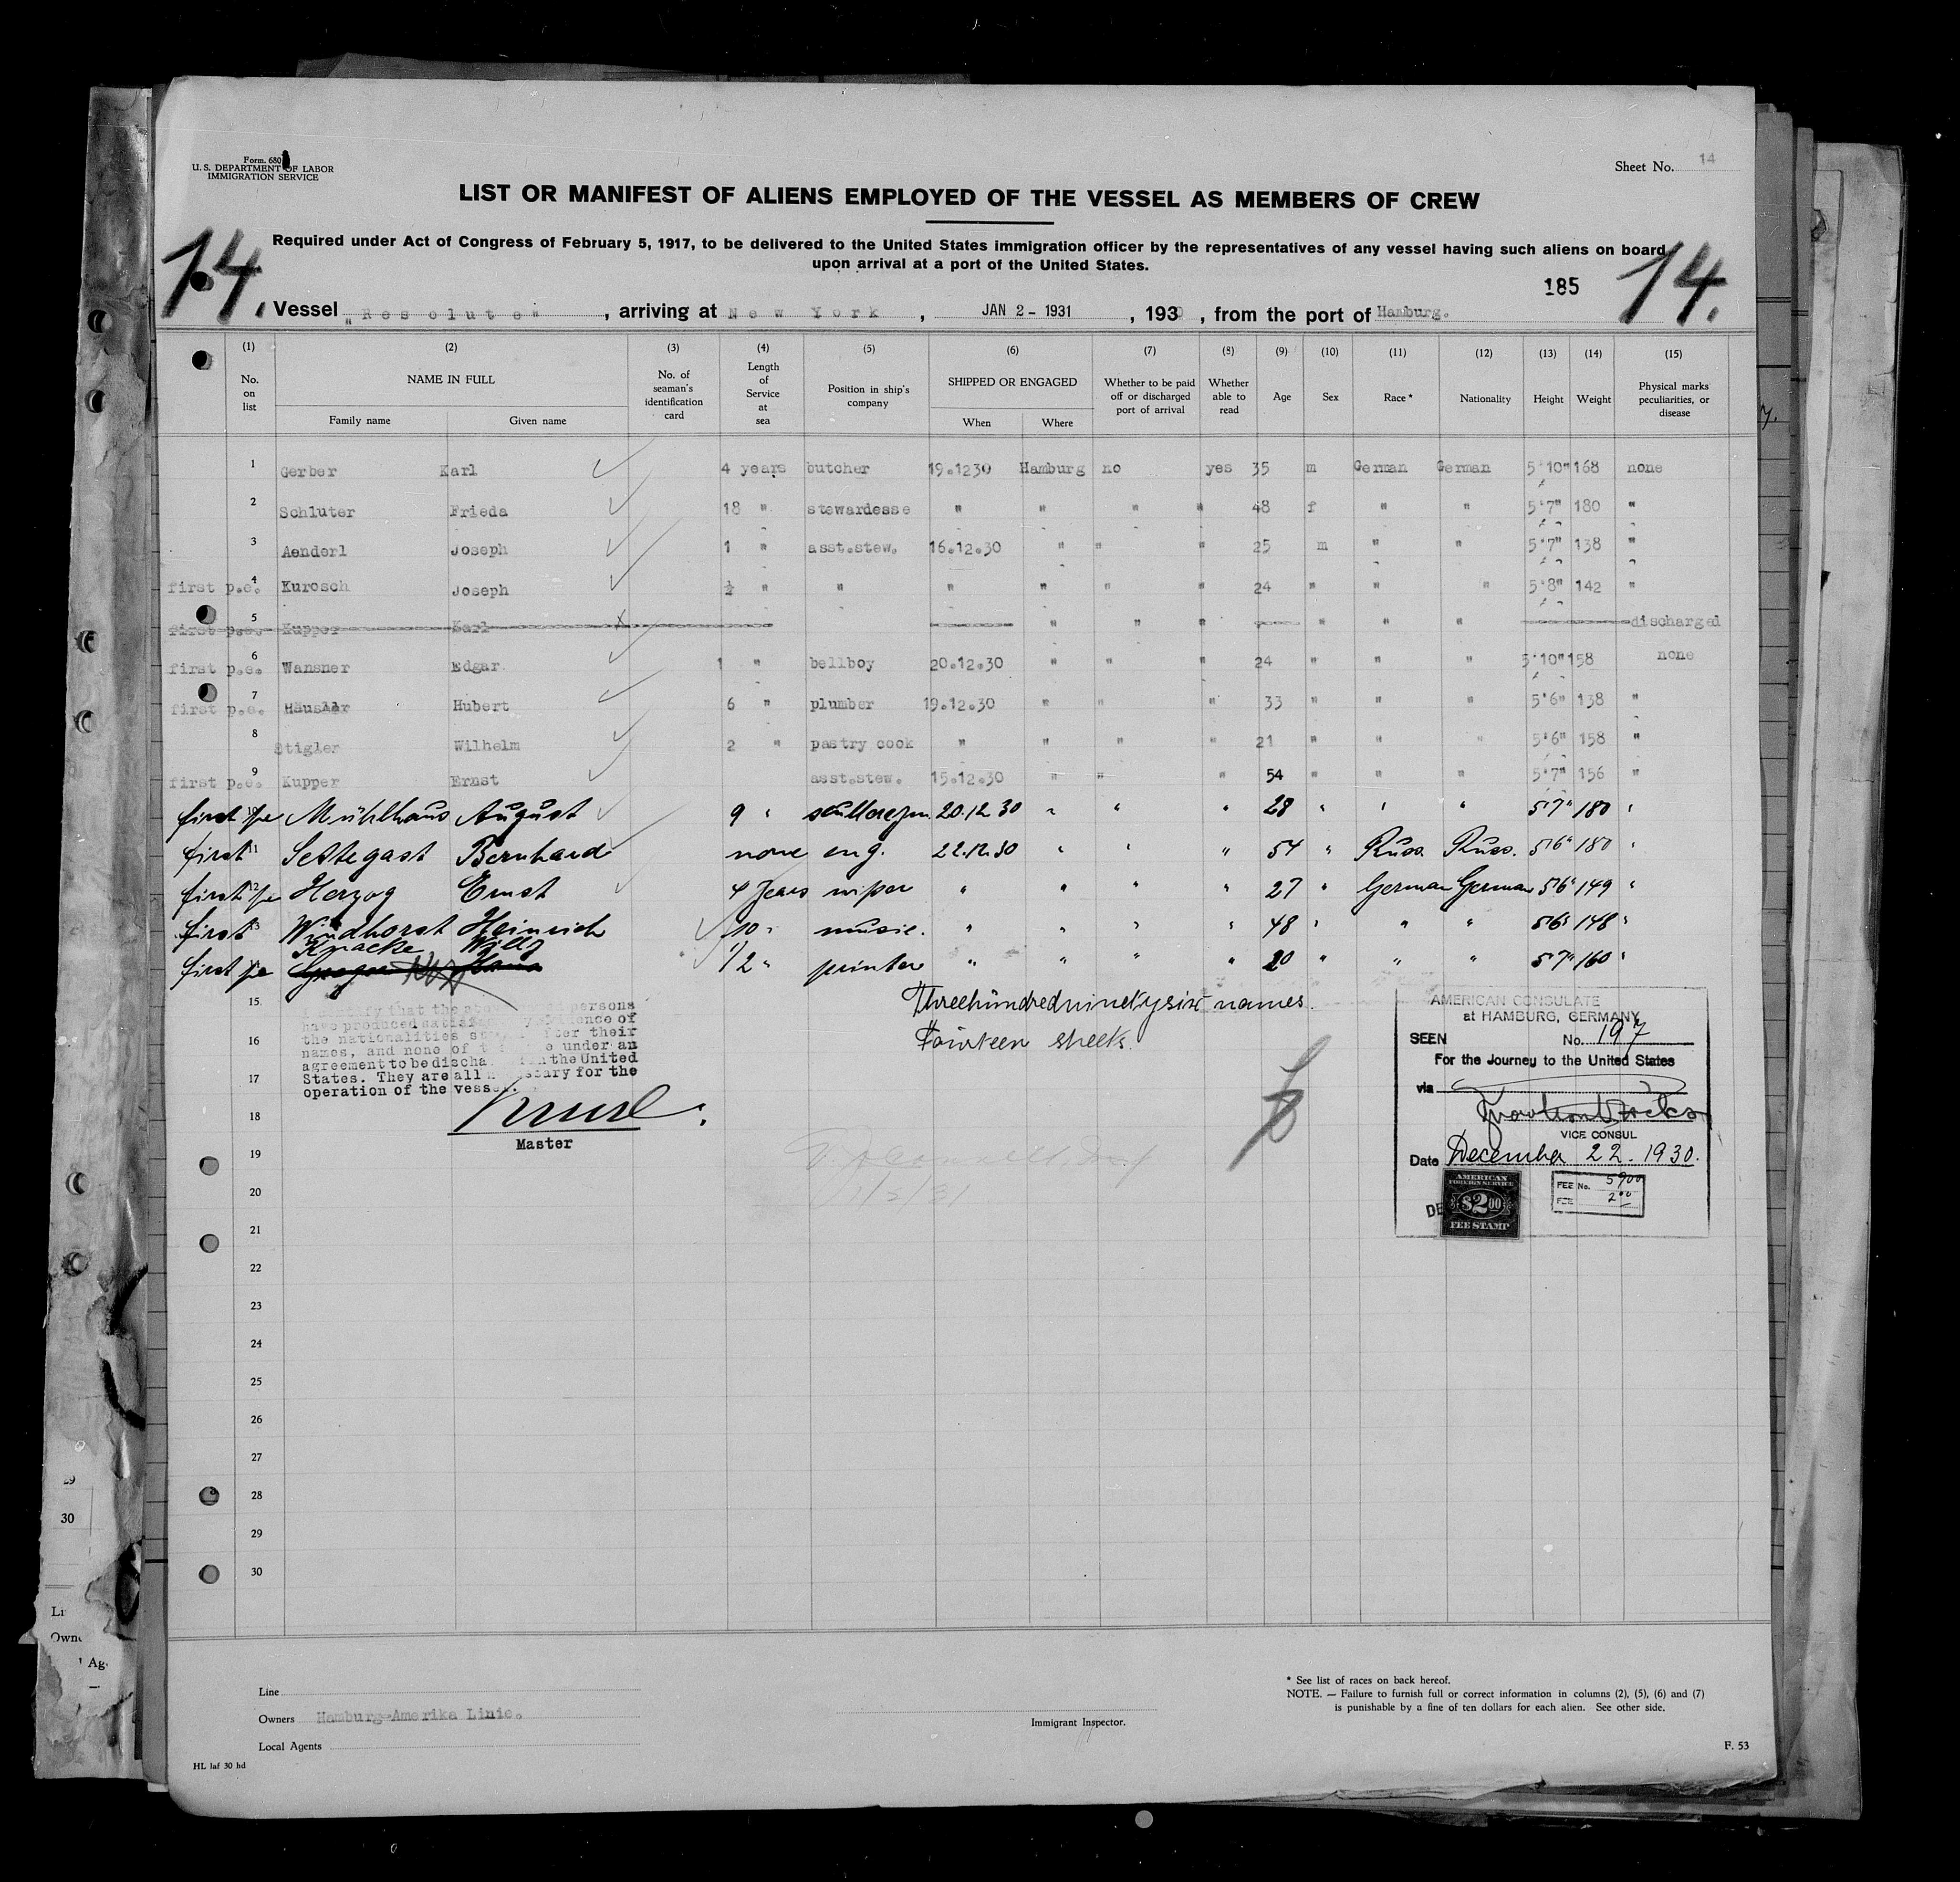 Form. 680
U. S. DEPARTMENT OF LABOR
IMMIGRATION SERVICE
Sheet No. 14
LIST OR MANIFEST OF ALIENS EMPLOYED OF THE VESSEL AS MEMBERS OF CREW
Required under Act of Congress of February 5, 1917, to be delivered to the United States immigration officer by the representatives of any vessel having such aliens on board
upon arrival at a port of the United States.
185
14. 14.
Vessel "Resolute" , arriving at New York , JAN 2 - 1931 , 1930 , from the port of Hamburg.
(1) (2) (3) (4) (5) (6) (7) (8) (9) (10) (11) (12) (13) (14) (15)
No. on list NAME IN FULL Family name Given name No. of seaman's identification card Length of Service at sea Position in ship's company SHIPPED OR ENGAGED When Where Whether to be paid off or discharged port of arrival Whether able to read Age Sex Race* Nationality Height Weight Physical marks peculiarities, or disease
1 Gerber Karl 4 years butcher 19.1230 Hamburg no yes 35 m German German 5'10" 168 none
2 Schluter Frieda 18 " stewardesse " " " " 48 f " " 5'7" 180 "
3 Aenderl Joseph 1 " asst.stew. 16.12.30 " " " 25 m " " 5'7" 138 "
first p.e. 4 Kurosch Joseph ½ " " " " " " 24 " " " 5'8" 142 "
first p.e. 5 Kupper Karl " " " " " " discharged
first p.e. 6 Wansner Edgar 1 " bellboy 20.12.30 " " " 24 " " " 5'10" 158 none
first p.e. 7 Häusler Hubert 6 " plumber 19.12.30 " " " 33 " " " 5'6" 138 "
8 Stigler Wilhelm 2 " pastry cook " " " " 21 " " " 5'6" 158 "
first p.e. 9 Kupper Ernst asst.stew. 15.12.30 " " " 54 " " " 5'7" 156 "
first pe 10 Mühlhaus August 9 " 20.12.30 " " " 28 " " " 5'7" 180 "
first 11 Settegast Bernhard none eng. 22.12.30 " " " 54 " Russ. Russ. 5'6" 180 "
first pe 12 Herzog Ernst 4 years wiper " " " " 27 " German German 5'6" 149 "
first 13 Windhorst Heinrich 10 " music. " " " " 48 " " " 5'6" 148 "
Knacke Willy
first pe 1/2 " printer " " " " 20 " " " 5'7" 160 "
15
I certify that the persons
have produced of
the nationalities after their
names, and none of under an
agreement to be the United
States. They are all for the
operation of the vessel.
Master
Threehundredninetysix names.
Fourteen sheets.
AMERICAN CONSULATE
at HAMBURG, GERMANY
SEEN No. 197
For the Journey to the United States
via
VICE CONSUL
Date December 22. 1930.
AMERICAN
FOREIGN SERVICE
$2.00
FEE STAMP
FEE No. 5900
FEE 2.00
DE
16
17
18
19
20
21
22
23
24
25
26
27
28
29
30
29
30
* See list of races on back hereof.
NOTE. — Failure to furnish full or correct information in columns (2), (5), (6) and (7)
is punishable by a fine of ten dollars for each alien. See other side.
Line
Owners Hamburg-Amerika Linie.
Local Agents
Immigrant Inspector.
HL laf 30 hd
F. 53